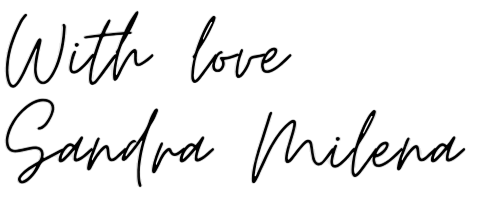 With love
Sandra Milena